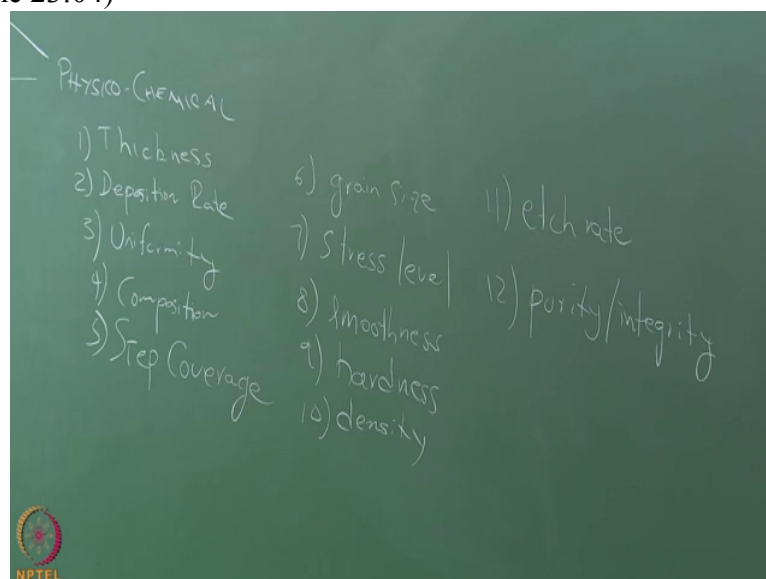 PHYSICO-CHEMICAL
1) Thickness
2) Deposition Rate
3) Uniformity
4) Composition
5) Step Coverage
6) grain size
7) Stress level
8) smoothness
9) hardness
10) density
11) etch rate
12) purity/integrity
NPTEL